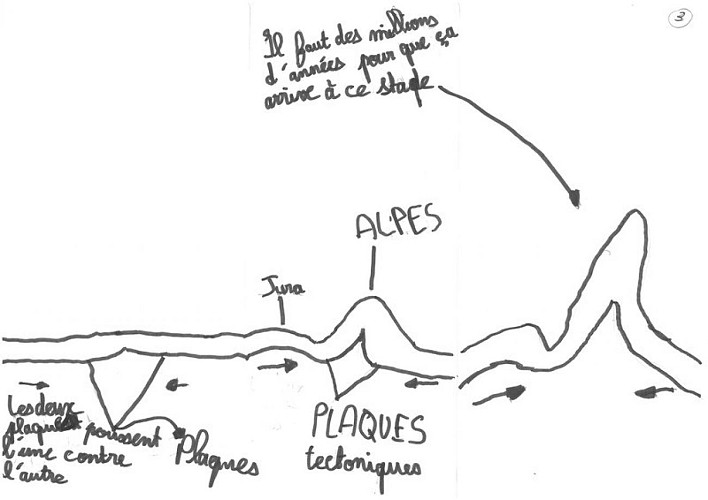 3
Il faut des millions
d'années pour que ça
arrive à ce stade
ALPES
Jura
Les deux
plaques poussent
l'une contre
l'autre
Plaques
PLAQUES
tectoniques